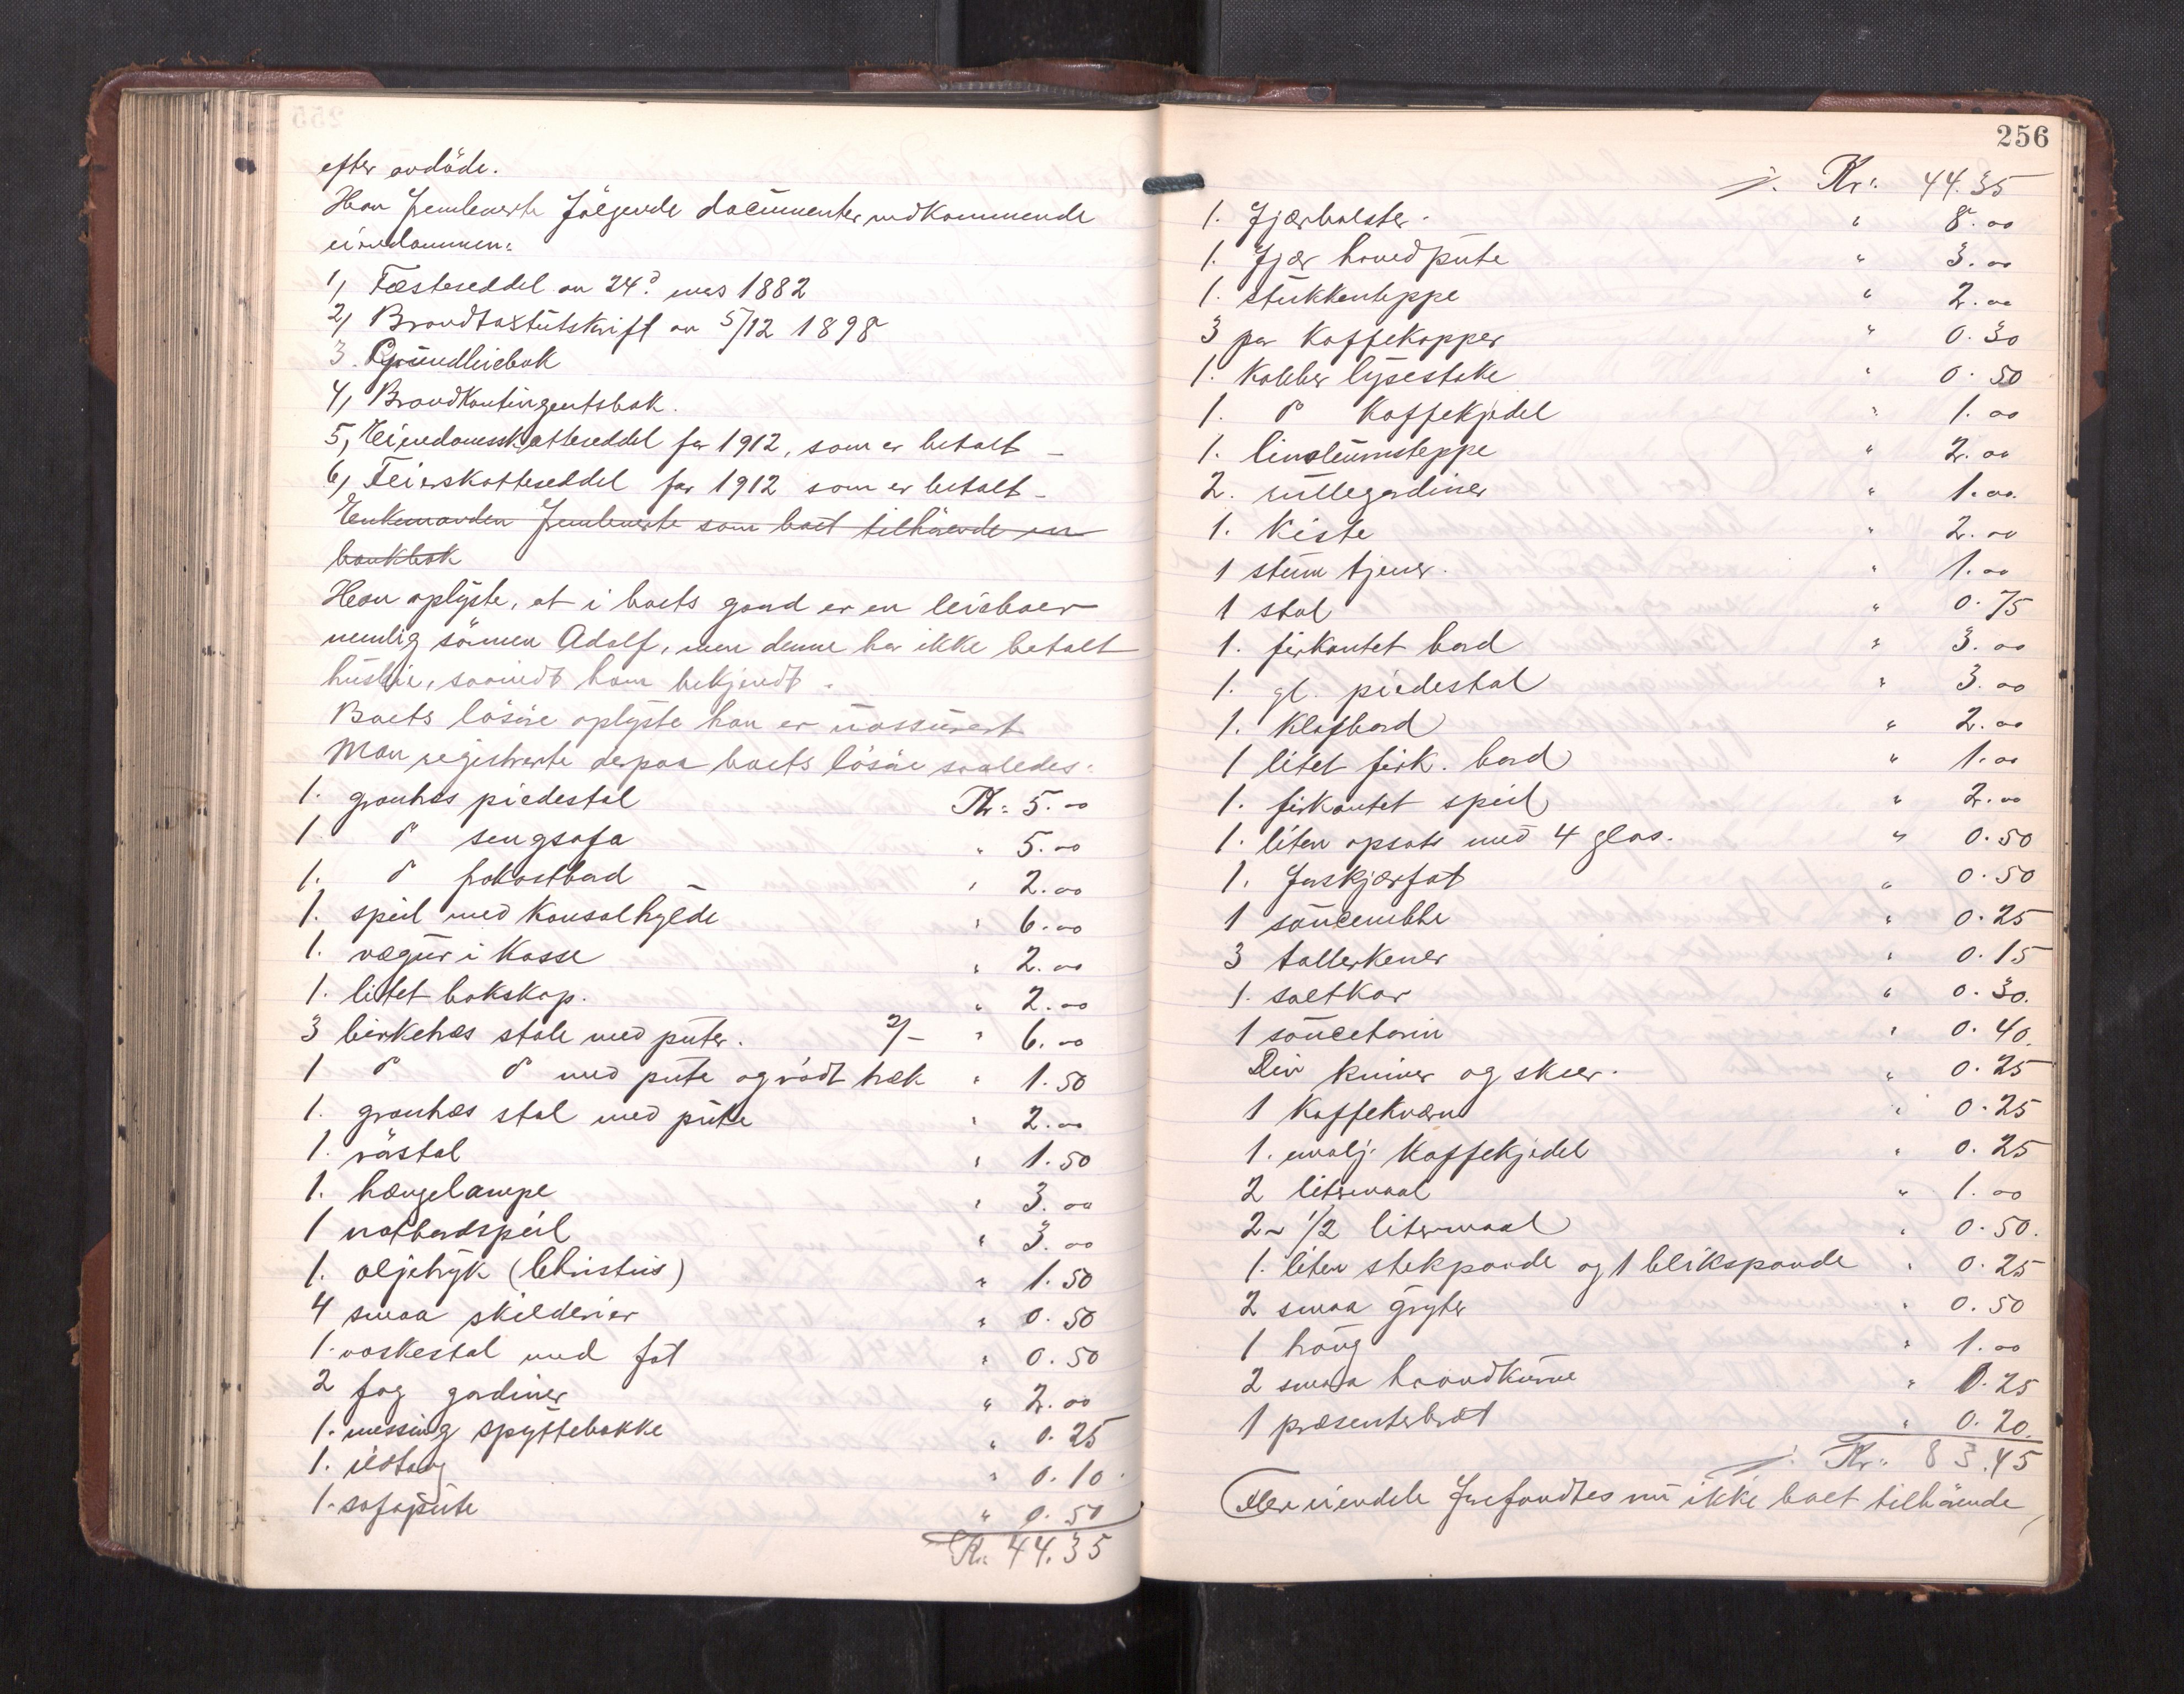 efter avdöde.
Han fremleverte følgende documenter vedkommende
eiendommen:
1, Fæsteseddel av 24d mars 1882
2, Brandtaxtutskrift av 5/12 1898
3. Grundleiebok
4, Brandkontingentsbok.
5, Eiendomsskatteseddel for 1912, som er betalt –
6, Feierskatteseddel for 1912 som er betalt –
Enkemanden fremleverte som boet tilhörende en
bankbok
Han oplyste, at i boets gaard er en leieboer
nemlig sönnen Adolf, men denne har ikke betalt
husleie, saavidt ham bekjendt.
Boets lösöre oplyste han er uassurert
Man registrerte derpaa boets lösöre saaledes:
1. grantræs piedestal Kr: 5.00
1. do sengsofa " 5.00
1. do frokostbord " 2.00
1. speil med Konsolhylde " 6.00
1. vægur i Kasse " 2.00
1. litet bokskap. " 2.00
3 birketræs stole med puter. 2/- " 6.00
1 do do med pute og rödt træk " 1.50
1. grantræs stol med pute " 2.00
1. rörstol " 1.50
1. hængelampe " 3.00
1 natbordspeil " 3.00
1. oljetryk (Christus) " 1.50
4 smaa skilderier " 0.50
1. vaskestol med fat " 0.50
2 fag gardiner " 2.00
1. messing spyttebakke " 0.25
1. ildtang " 0.10
1. sofapute " 0.50
Kr: 44.35
256
Kr: 44.35
1. fjærbolster. " 8.00
1. fjær hovedpute " 3.00
1. stukkenteppe " 2.00
3 par Kaffekopper " 0.30
1. Kobber lysestake " 0.50
1. do Kaffekjedel " 1.00
1. linoleumsteppe " 2.00
2. rullegardiner " 1.00
1. Kiste " 2.00
1 stum tjener. " 1.00
1 stol " 0.75
1. firkantet bord " 3.00
1. gl. piedestal " 3.00
1. Klafbord " 2.00
1 litet firk. bord " 1.00
1. firkantet speil " 2.00
1. liten opsats med 4 glas. " 0.50
1. forskjærfat " 0.50
1 saucenebbe " 0.25
3 tallerkener " 0.15
1. saltkar " 0.30.
1 sauceterin " 0.40.
Div kniver og skeer. " 0.25
1 Kaffekværn " 0.25
1. emalj. Kaffekjedel " 0.25
2 litermaal " 1.00
2 – 1/2 litermaal " 0.50.
1. liten stekpande og 1 blikspande " 0.25
2 smaa gryter " 0.50
1 traug " 1.00
2 smaa haandkurve " 0.25
1 præsenterbræt " 0.20.
Kr: 83.45
Mere eiendele forefandtes nu ikke boet tilhörende,